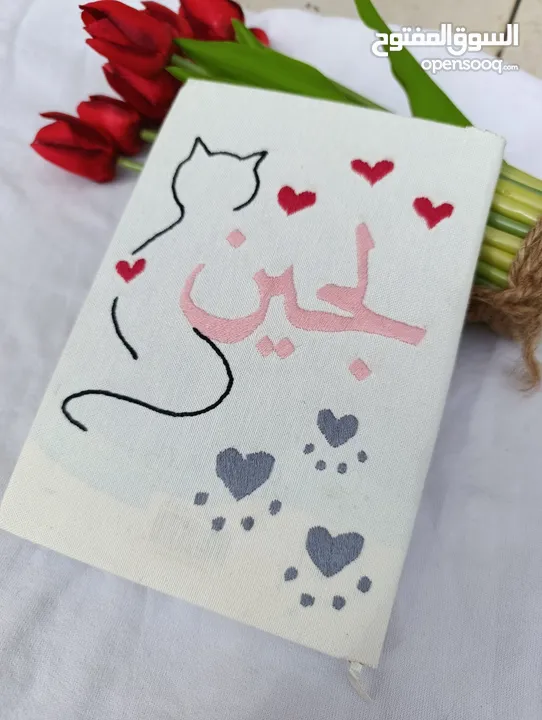 السوق المفتوح
opensooq.com
لجين